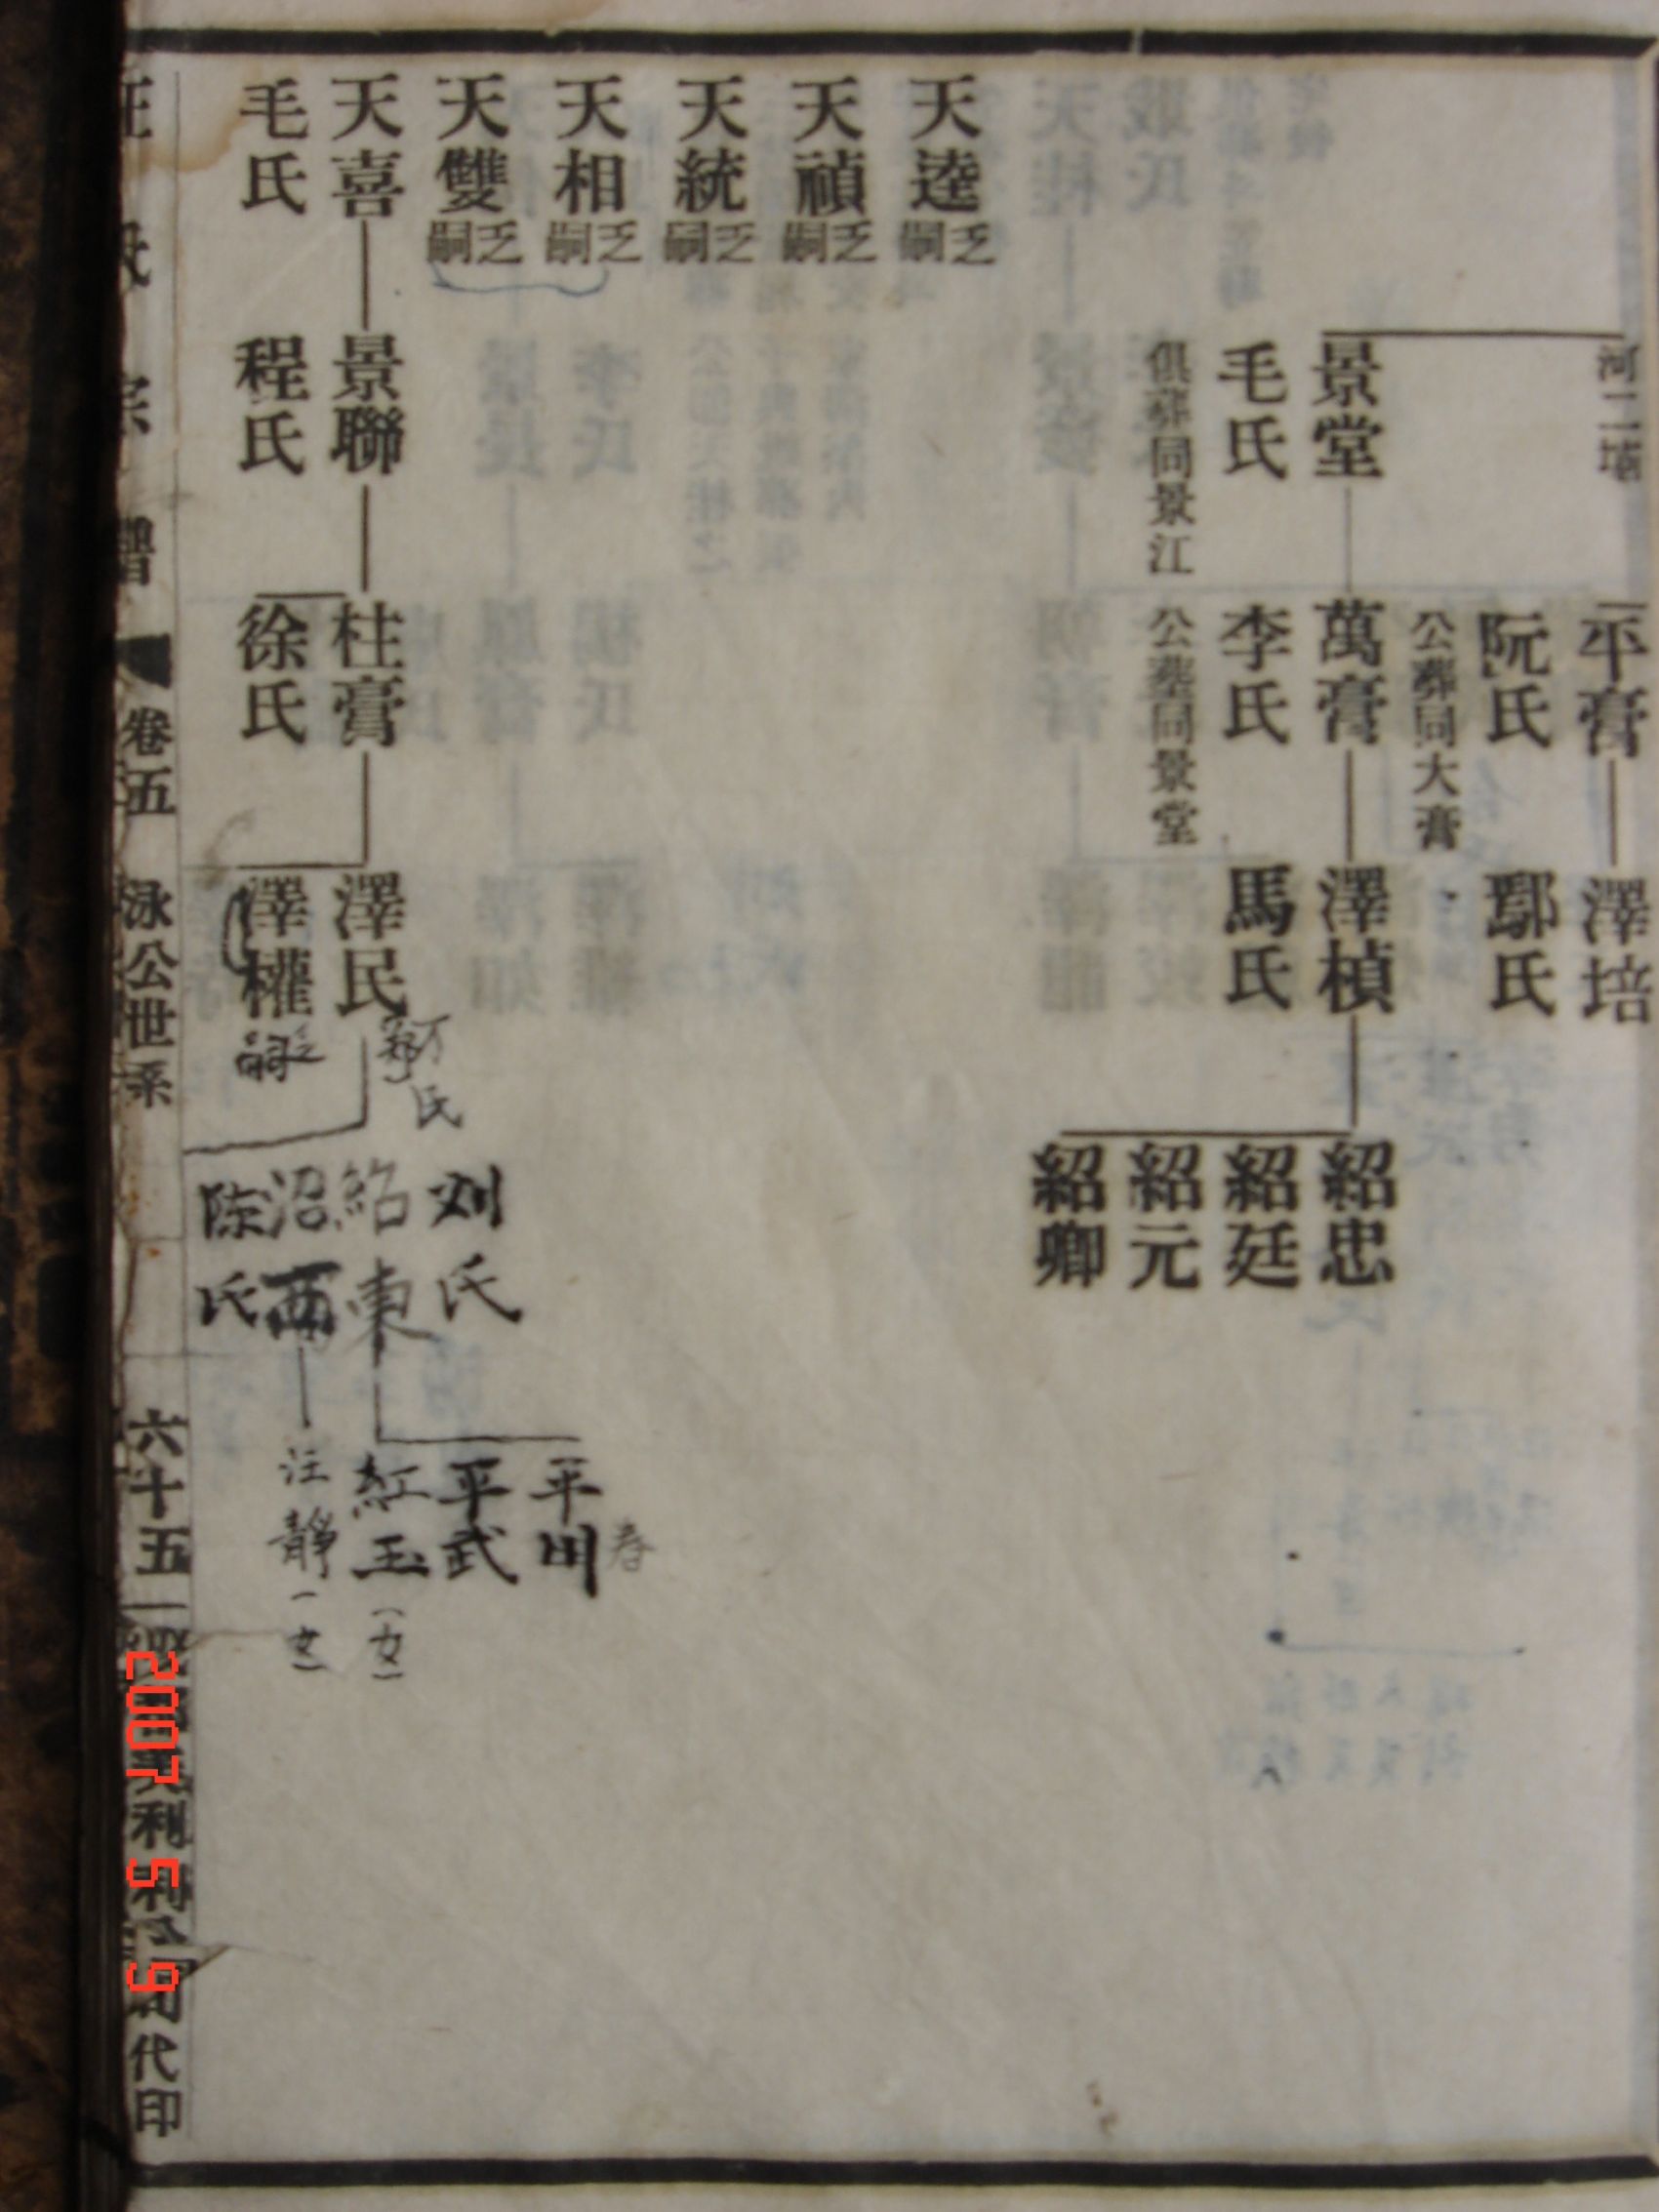 河二壋
平膏
阮氏
公葬同大膏
澤培
鄢氏
景堂
毛氏
俱葬同景江
萬膏
李氏
公墓同景堂
澤楨
馬氏
紹忠
紹廷
紹元
紹卿
天逵乏嗣
天禎乏嗣
天統乏嗣
天相乏嗣
天雙乏嗣
天喜
毛氏
景聯
程氏
柱膏
徐氏
澤民
氏
澤權乏嗣
刘氏
紹東
沼西
陈氏
平
春
平武
紅玉(女)
汪靜(女)
汪氏宗譜
卷五
泳公世系
六十五
代印
2007 5 9